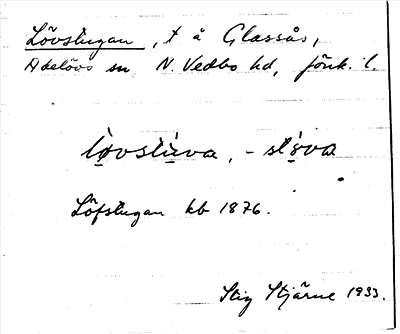 Lövstugan, t å Glassås,
Adelövs sn, N. Vedbo hd, Jönk. l.
lövstuva, -stova
Löfstugan kb 1876.
Stig Stjärne 1933.